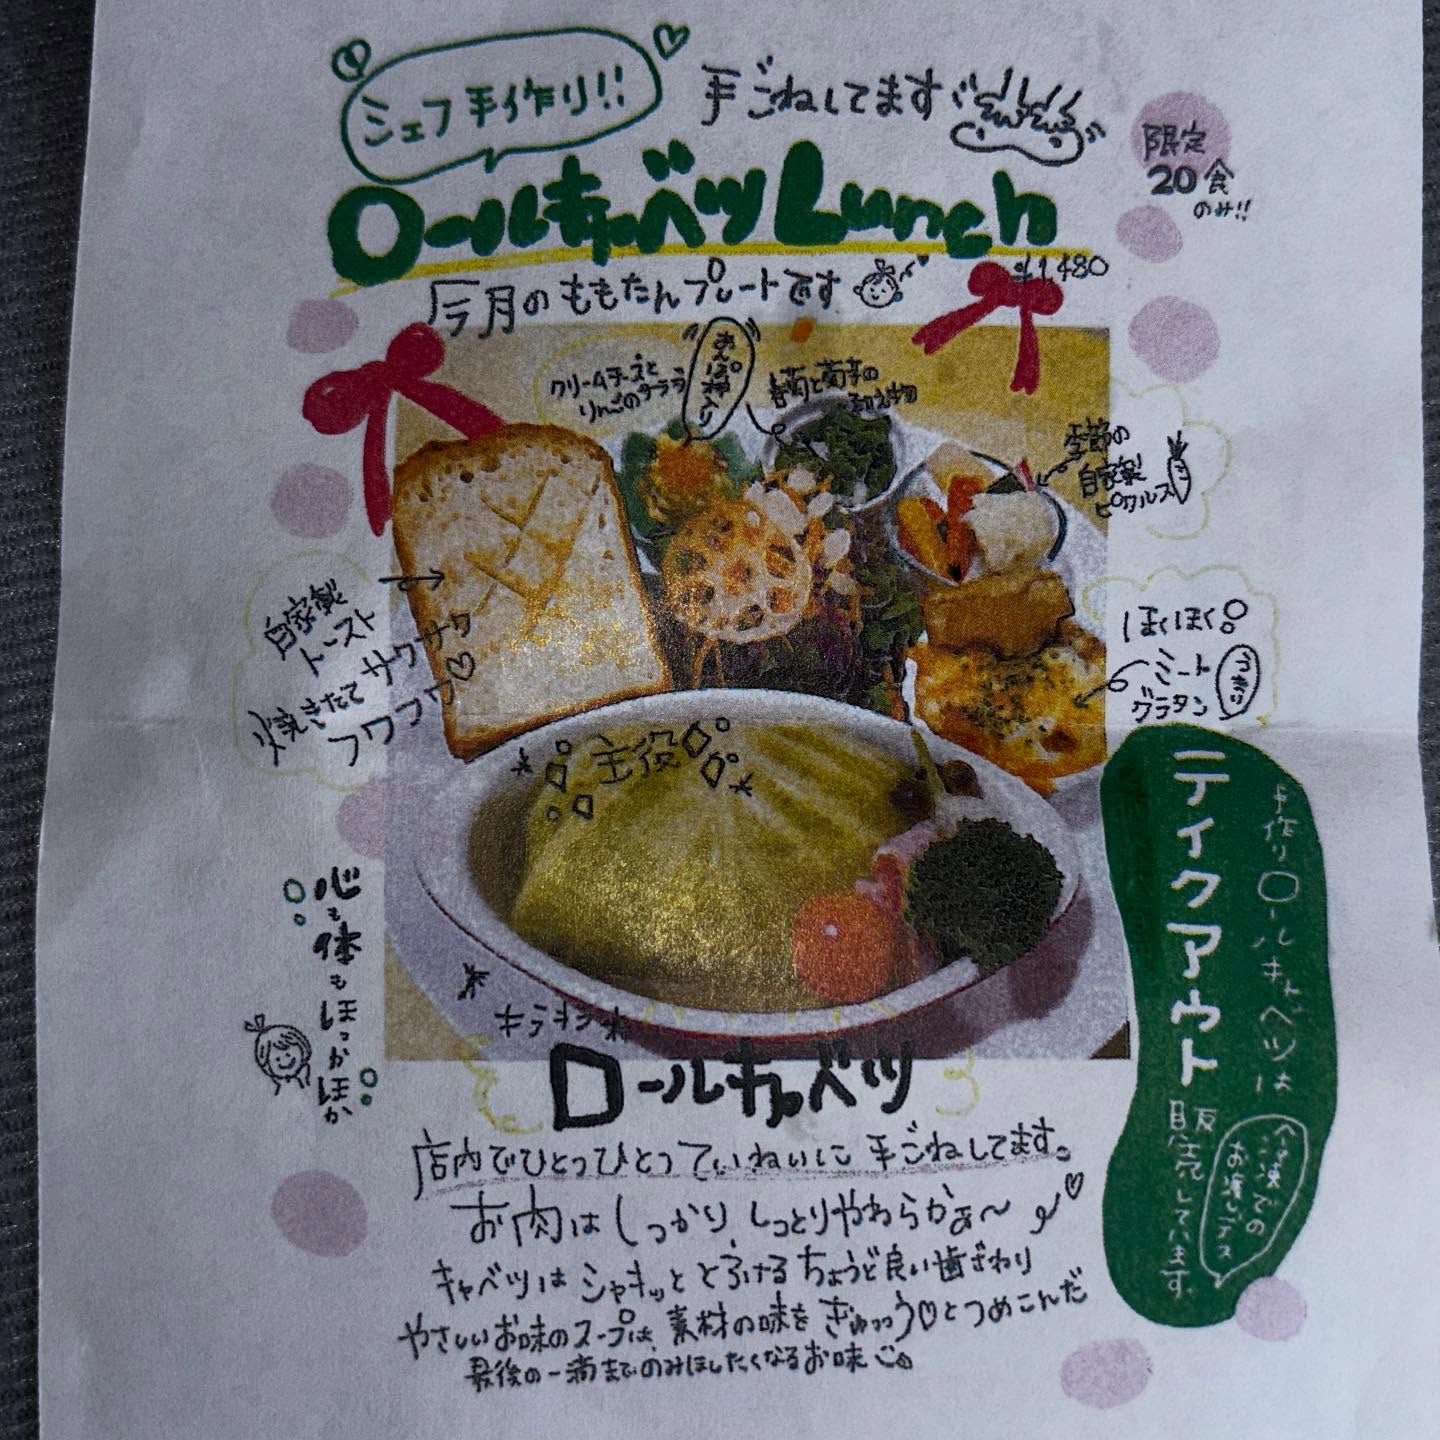 シェフ手作り!!
手ごねしてます
限定
20食
のみ!!
ロールキャベツLunch
¥1,480
今月のももたんプレートです
クリームチーズと
りんごのサラダ
あんぽ柿入り
春菊と菊芋の
和え物
季節の
自家製
ピクルス
自家製
トースト
焼きたて サクサク
フワフワ♡
ほくほく
ミート
グラタン
主役
キラキラ
ロールキャベツ
心も体もほっかほか
手作りロールキャベツは
テイクアウト
販売しています。
冷凍での
お渡しデス
店内でひとつひとつていねいに手ごねしてます。
お肉はしっかり、しっとりやわらかぁ〜♡
キャベツはシャキッととろけるちょうど良い歯ざわり
やさしいお味のスープは、素材の味をぎゅっっう♡とつめこんだ
最後の一滴までのみほしたくなるお味